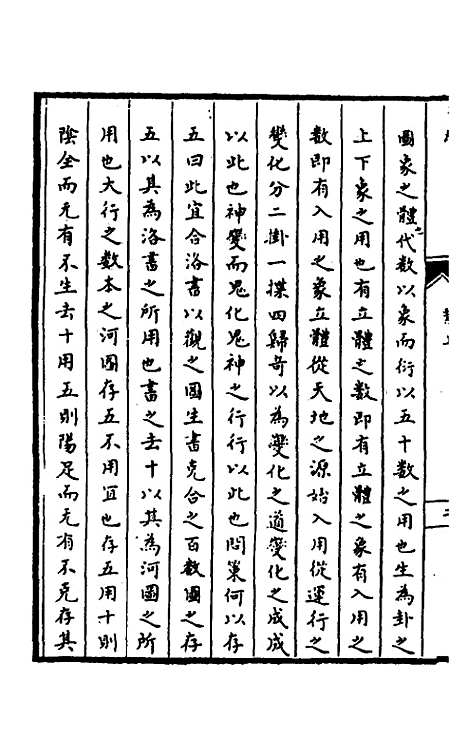 圖象之體代數以象而衍以五十數之用也生為卦之
上下象之用也有立體之數即有立體之象有入用之
数即有入用之象立體從天地之源始入用從運行之
變化分二掛一揲四歸奇以為變化之道變化之成成
以此也神變而鬼化鬼神之行行以此也問策何以存
五曰此宜合洛書以觀之圖生書克合之百數圖之存
五以其為洛書之所用也書之去十以其為河圖之所
用也大行之數本之河圖存五不用宜也存五用十則
陰全而无有不生去十用五則陽足而无有不克存其